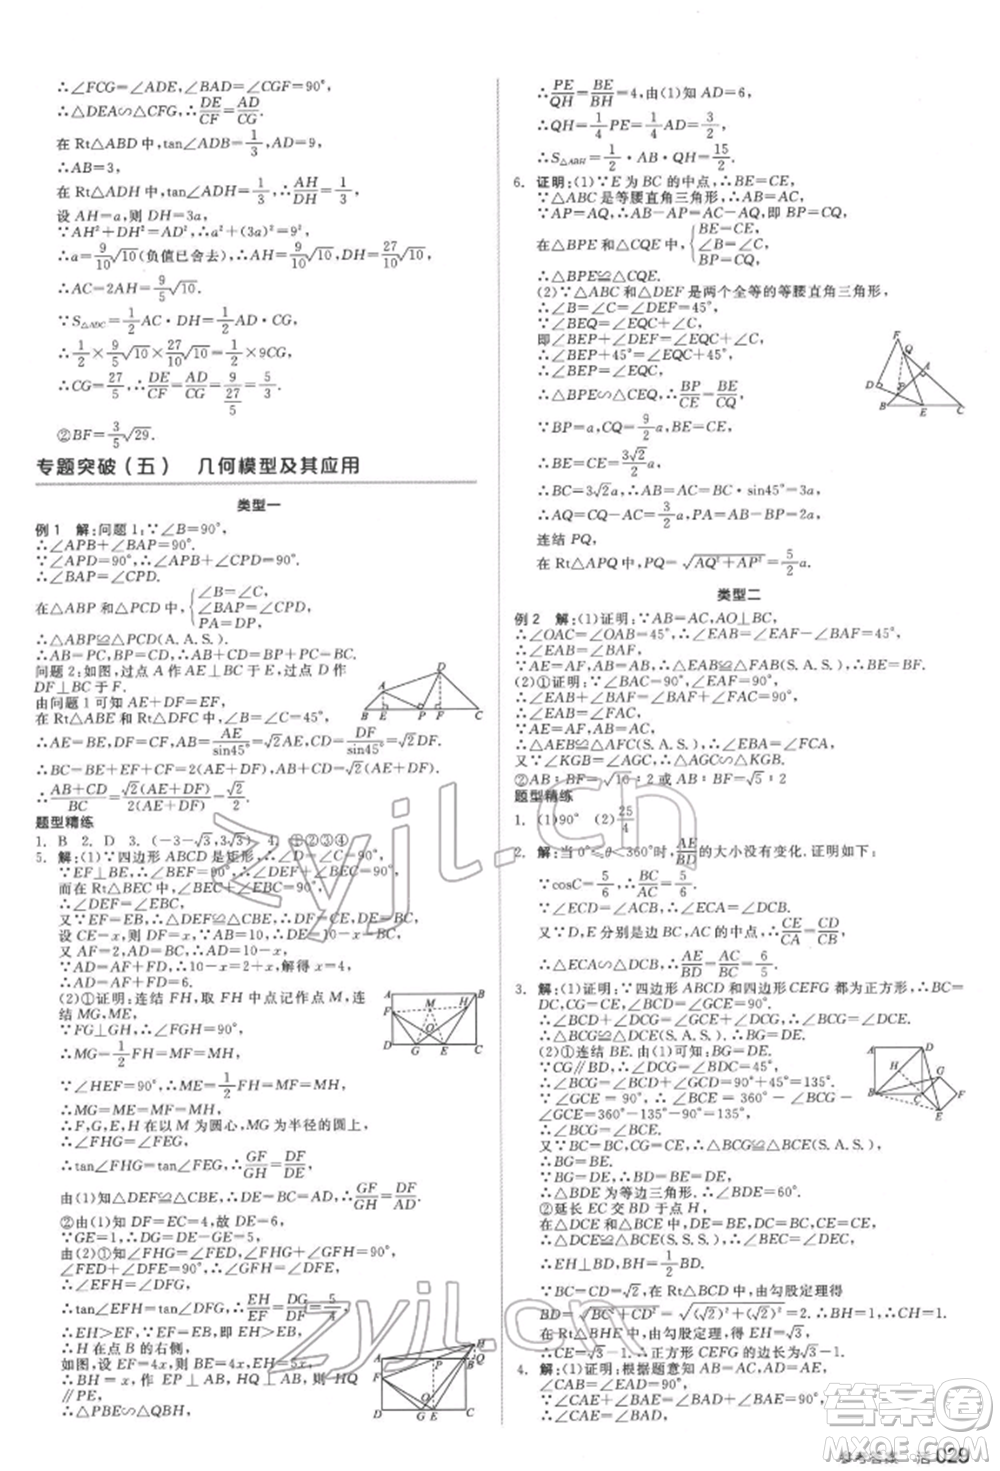 ∴∠FCG=∠ADE,∠BAD=∠CGF=90°,
∴△DEA∽△CFG,∴DE/CF=AD/CG.
在 Rt△ABD 中,tan∠ADB=1/3,AD=9,
∴AB=3.
在 Rt△ADH 中,tan∠ADH=1/3,∴AH/DH=1/3,
设 AH=a,则 DH=3a,
∵AH²+DH²=AD²,∴a²+(3a)²=9²,
∴a=9/10√10(负值已舍去),∴AH=9/10√10,DH=27/10√10,
∴AC=2AH=9/5√10,
∵S△ADC=1/2AC·DH=1/2AD·CG,
∴1/2×9/5√10×27/10√10=1/2×9CG,
∴CG=27/5,∴DE/CF=AD/CG=9/(27/5)=5/3.
②BF=3/5√29.
专题突破(五) 几何模型及其应用
类型一
例1 解:问题1:∵∠B=90°,
∴∠APB+∠BAP=90°.
∵∠APB+∠CPD=90°,
∴∠BAP=∠CPD.
在△ABP 和△PCD 中,{∠B=∠C,∠BAP=∠CPD,PA=DP,
∴△ABP≌△PCD(A.A.S.).
∴AB=PC,BP=CD,∴AB+CD=PC+BP=BC.
问题2:如图,过点 A 作 AE⊥BC 于 E,过点 D 作
DF⊥BC 于 F.
由问题1可知 AE+DF=EF,
在 Rt△ABE 和 Rt△DFC 中,∠B=∠C=45°,
∴AE=BE,DF=CF,AB=AE/sin45°=√2AE,CD=DF/sin45°=√2DF,
∴BC=BE+EF+CF=2(AE+DF),
∴(AB+CD)/BC=√2(AE+DF)/2(AE+DF)=√2/2.
题型精练
1. B 2. D 3. (-3-√3,3√3) 4. ①②③④
5. 解:(1)证明:∵四边形 ABCD 是矩形,
∵EF⊥BE,∴∠DEF+∠BEC=90°,
而在 Rt△BEC 中,∠BEC+∠EBC=90°,
∴∠DEF=∠EBC,
又∵EF=BE,∴△DEF≌△CBE,∴DF=CE,
设 CE=x,DF=x,∵AB=10,∴DE=10-x,
又 AF=2,AD=DE,∴AD=10-x,
∵AD=AF+DF,∴10-x=2+x,解得 x=4,
∴AD=AF+DF=6.
(2)①证明:连结 FH,取 FH 中点记作点 M,连
结 MG,ME,
∵∠FGH=90°,
∴MG=1/2FH=FM=MH,
∵∠FEH=90°,∴ME=1/2FH,
∴MG=ME=MF=MH,
∴F,G,E,H 在以 M 为圆心,MG 为半径的圆上,
∴∠FHG=∠FED,
∴tan∠FHG=tan∠FED,∴GF/GH=DF/DE,
由(1)知△DEF≌△CBE,∴DE=BC=AD,∴GF/GH=DF/AD.
②由(1)知 DF=EC=4,故 DE=6,
∵GE=1,∴DG=DE-GE=5,
由(2)知∠FHG=∠FED,∠GFH+∠FHG=90°,
∠FED+∠DFE=90°,∴∠GFH=∠DFE,
∴∠EFH=∠DFG,∴EH/EF=DG/DF=5/4,
∴EH>EF,∵EF=EB,∴EH>EB,
∴H 在点 B 的右侧,
如图,过点 E 作 EP⊥AB 于 P,过 H 作 HQ
∥PE 交 AB 延长线于 Q,
∴△PBE∽△QBH,
∴PE/QH=BE/BH=4,由(1)知 AD=6,
∴QH=1/4PE=1/4AD=3/2,
∴S△ABH=1/2AB·QH=15/2.
6. 证明:(1)∵E 为 BC 的中点,∴BE=CE,
∵△ABC 是等腰直角三角形,∴∠B=∠C,AB=AC,
∵AP=AQ,∴AB-AP=AC-AQ,即 BP=CQ,
在△BPE 和△CQE 中,{BE=CE,∠B=∠C,BP=CQ,
∴△BPE≌△CQE.
(2)∵△ABC 和△DEF 是两个全等的等腰直角三角形,
∴∠B=∠C=∠DEF=45°,
∵∠BEQ=∠EQC+∠C,
即∠BEP+∠DEF=∠EQC+∠C,
∴∠BEP+45°=∠EQC+45°,
∴∠BEP=∠EQC,
∴△BPE∽△CEQ,∴BP/CE=BE/CQ,
∵BP=a,CQ=9/2a,BE=CE,
∴BE=CE=3√2/2a,
∴BC=3√2a,∴AB=AC=BC·sin45°=3a,
∴AQ=CQ-AC=3/2a,PA=AB-BP=2a,
连结 PQ,
在 Rt△APQ 中,PQ=√(AQ²+AP²)=5/2a.
类型二
例2 解:(1)证明:∵AB=AC,AO⊥BC,
∴∠OAC=∠OAB=45°,∴∠EAB=∠EAF-∠BAF=45°,
∴∠EAB=∠FAB=45°,
∵AE=AF,AB=AB,∴△AEB≌△AFB(S.A.S.).
(2)①证明:∵∠BAC=∠EAF=90°,
∴∠EAB+∠BAF=∠BAF+∠FAC=90°,
∴∠EAB=∠FAC,
∵AE=AF,AB=AC,
∴△AEB≌△AFC(S.A.S.),∴∠EBA=∠FCA,
又∵∠KGB=∠AGC,∴△BKG∽△CAG.
②AB∶BF=√10∶2 或 AB∶BF=√5∶2
题型精练
1. (1)90° (2)25/4
2. 解:当 0°≤θ<360°时,AE/BD的大小没有变化.证明如下:
∵cosC=5/6,∴BC/AC=5/6,
∵∠ECD=∠ACB,∴∠ECA=∠DCB.
又∵D,E 分别是边 BC,AC 的中点,∴CE/CA=CD/CB=1/2,
∴△ECA∽△DCB,∴AE/BD=AC/BC=6/5.
3. 解:(1)证明:∵四边形 ABCD 和四边形 CEFG 都为正方形,∴BC=
DC,CG=CE,∠BCD=∠GCE=90°,
∴∠BCD+∠DCG=∠GCE+∠DCG,∴∠BCG=∠DCE.
∴△BCG≌△DCE(S.A.S.),∴BG=DE.
(2)①连结 BE.由(1)可知:BG=DE.
∵CG∥BD,∴∠DCG=∠BDC=45°,
∴∠BCG=∠BCD+∠DCG=90°+45°=135°,
∵∠GCE=90°,∴∠BCE=360°-∠BCG-
∠GCE=360°-135°-90°=135°,
∴∠BCG=∠BCE.
∵BC=BC,CG=CE,∴△BCG≌△BCE(S.A.S.),
∴BG=BE.
∵BG=DE,∴BD=BE=DE,
∴△BDE 为等边三角形,∴∠BDE=60°.
②延长 EC 交 BD 于点 H,
在△DCE 和△BCE 中,DE=BE,CE=CE,DC=BC,
∴△DCE≌△BCE(S.S.S.),∴∠DEC=∠BEC,
∴EH⊥BD,∴BH=1/2BD.
∵BC=CD=√2,∴在 Rt△BCD 中,由勾股定理得
BD=√(BC²+CD²)=√((√2)²+(√2)²)=2.∴BH=1,∴CH=1.
在 Rt△BHE 中,由勾股定理,得 EH=√3,
∴CE=√3-1.∴正方形 CEFG 的边长为√3-1.
4. 解:(1)证明:根据题意知 AB=AC,AD=AE,
∠CAB=∠EAD=90°,
∵∠CAE+∠BAE=∠BAD+∠BAE=90°,
∴∠CAE=∠BAD,
参考答案·活 029
答案圈
zyjl.cn